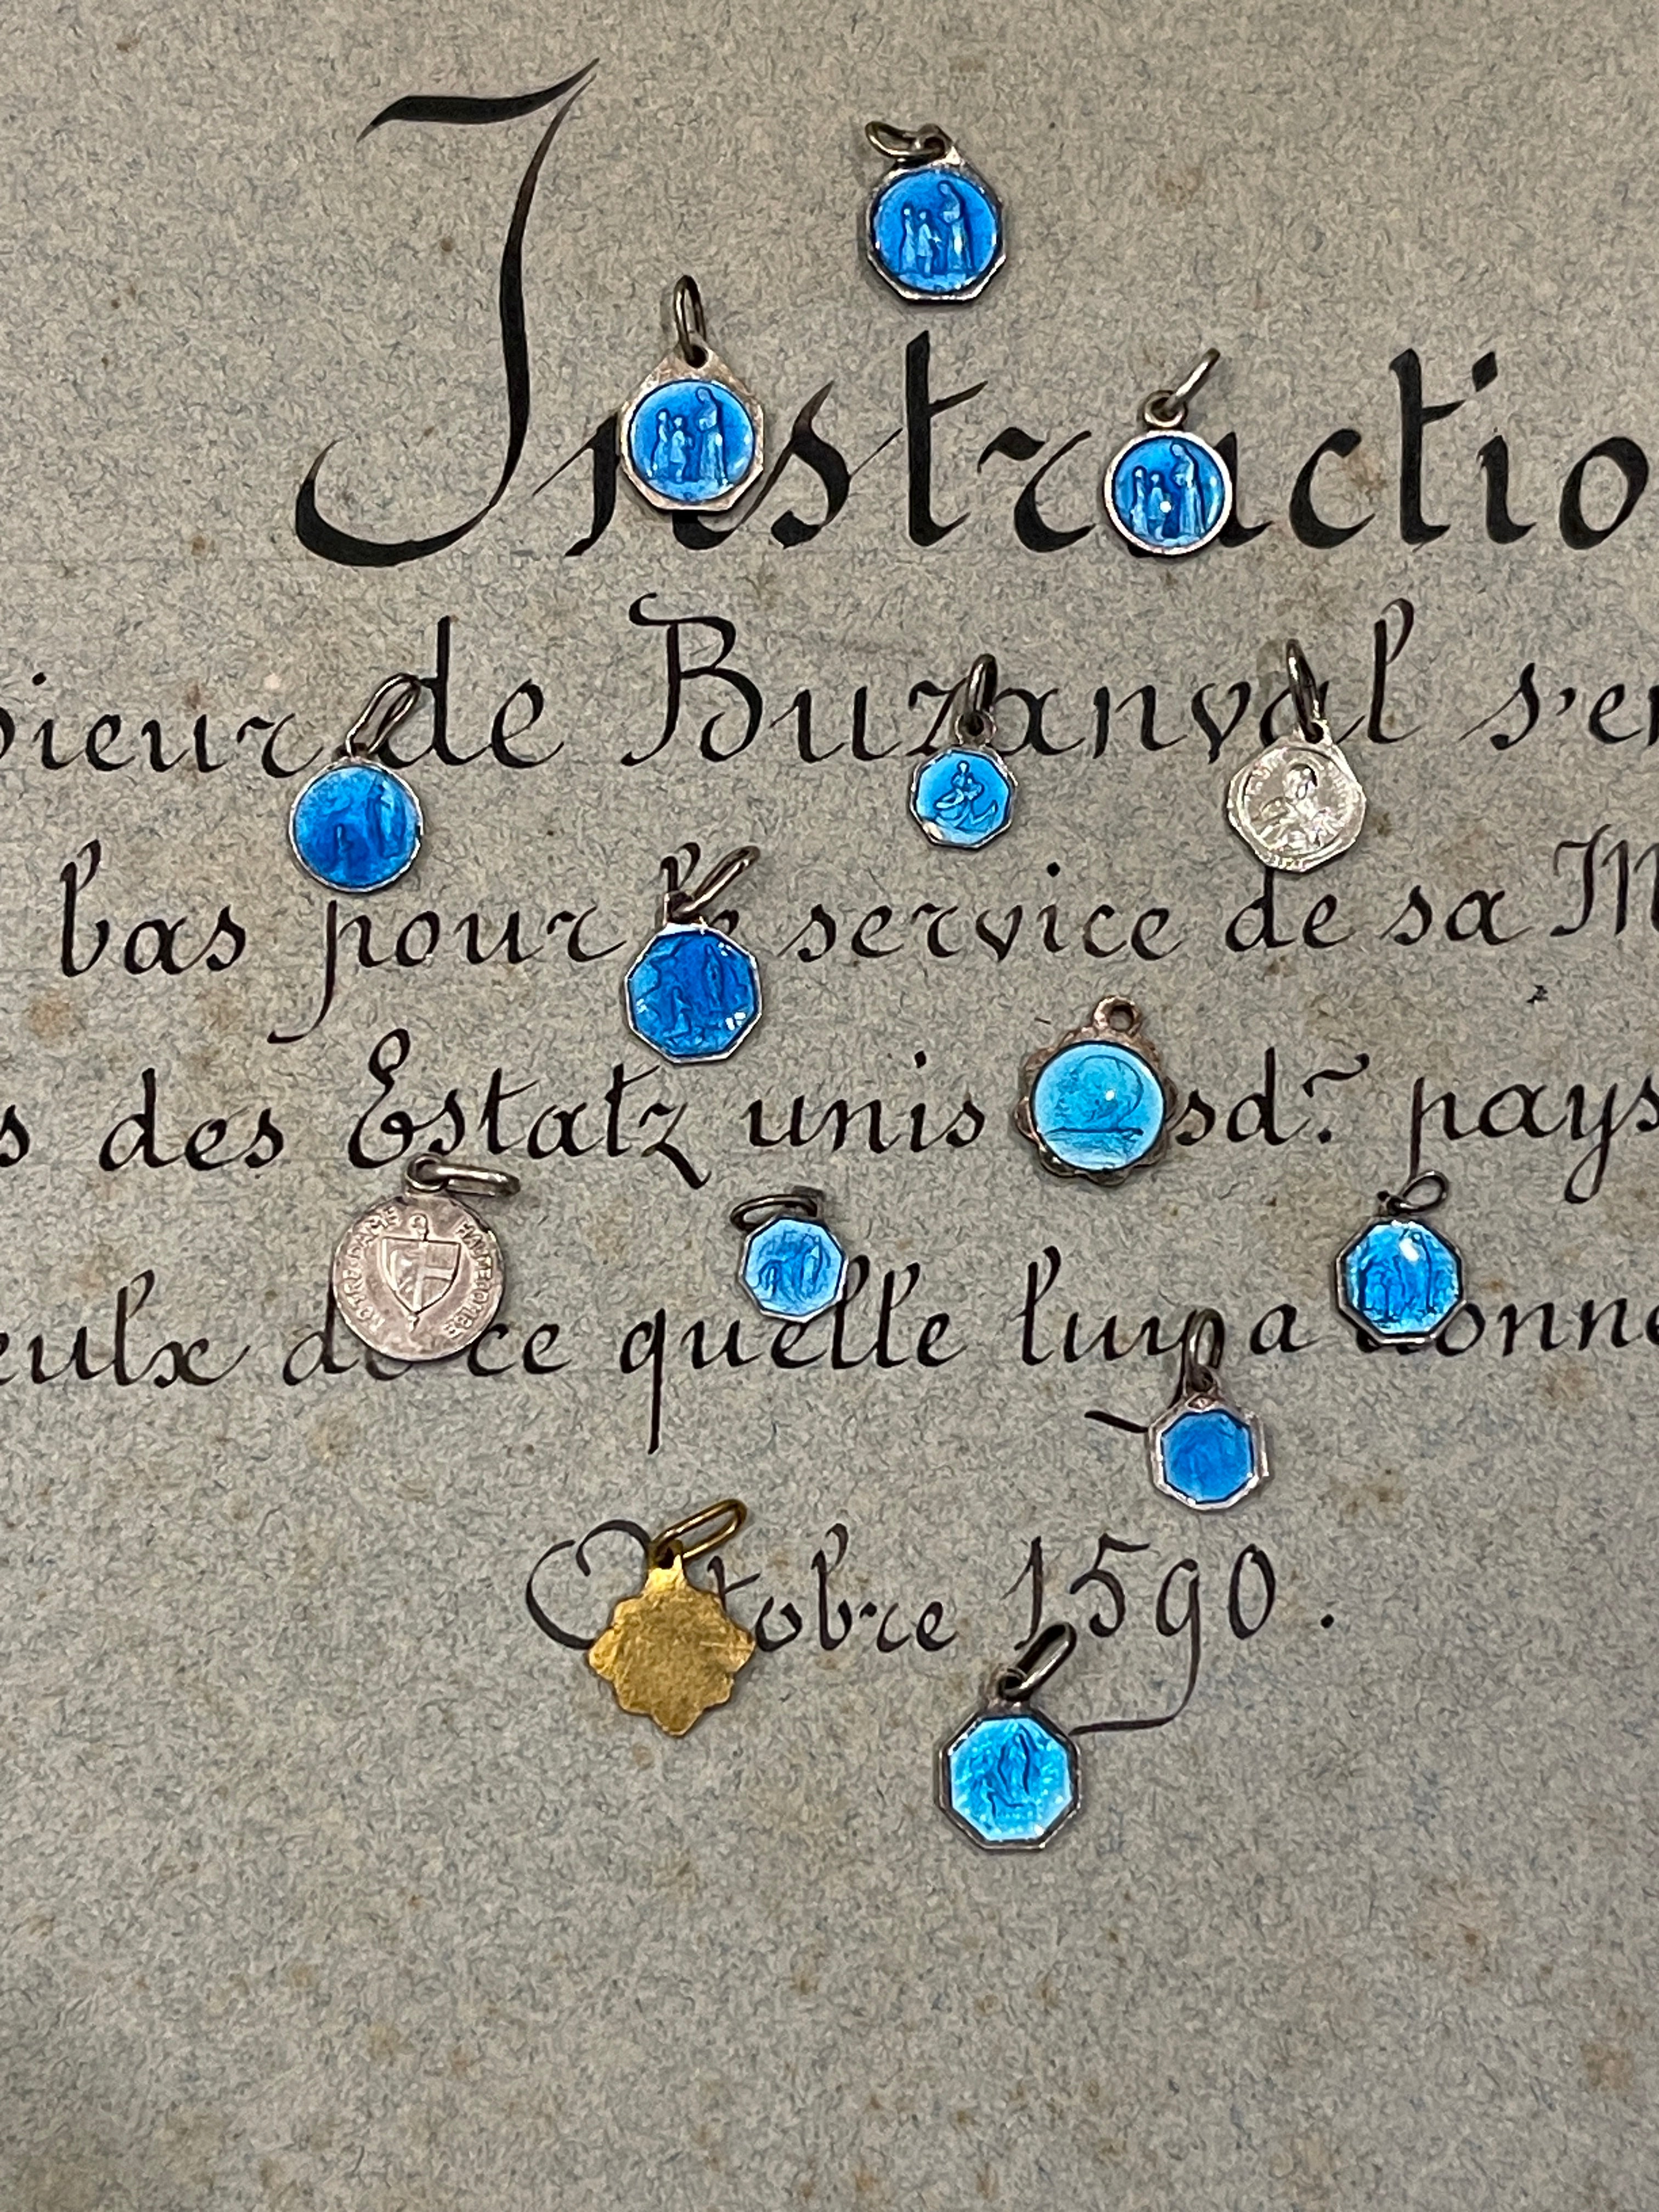 de Buzanval s'en
bas pour service de sa M
s des Estatz unis sd. pays
eulx de ce quelle luy a donne
NOTRE DAME HAUTECOMBE
1590.